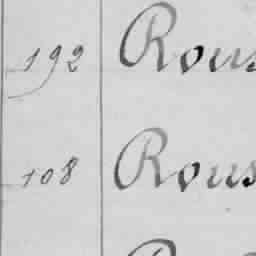 192 Rous
108 Rous